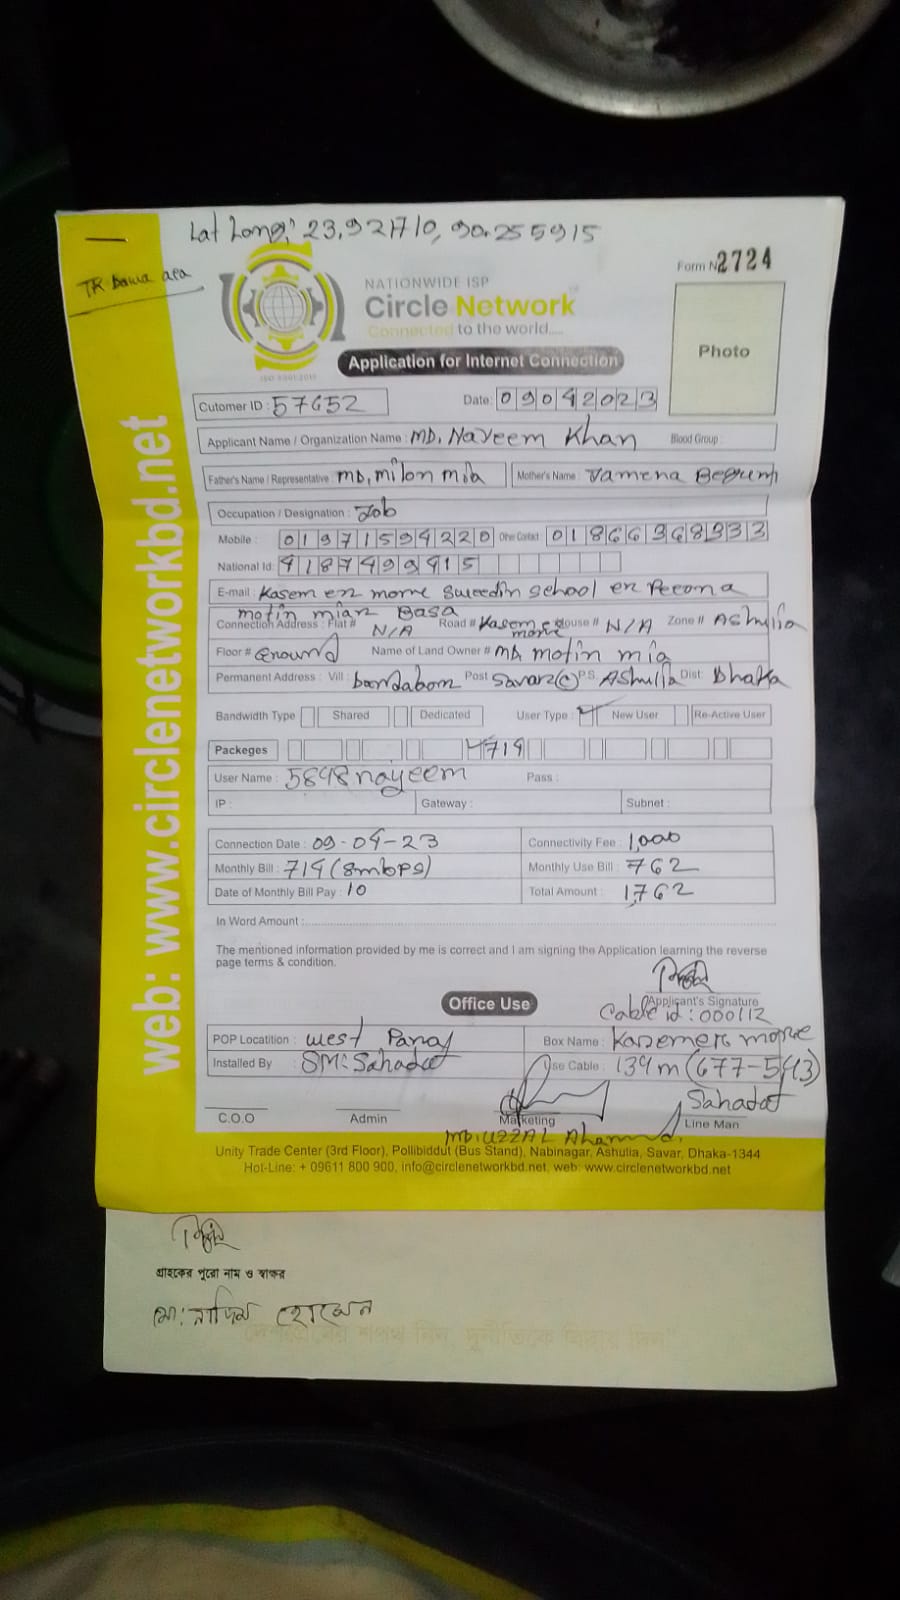 Lat Long; 23.921710, 90.255915
TR. bawa ara
Form No 2724
NATIONWIDE ISP
Circle Network
Connected to the world.....
ISO 9001:2015
Application for Internet Connection
Photo
Cutomer ID : 57652 Date: 09042023
Applicant Name / Organization Name : MD. Nayeem Khan Blood Group :
Father's Name / Representative : MD, milon mia Mother's Name : Jamena Begum
Occupation / Designation : Job
Mobile : 01971594220 Other Contact : 01866368333
National Id : 4187499415
E-mail : Kasem er more school er
motin mian Basa
Connection Address : Flat # N/A Road # Kasem er more House # N/A Zone # Ashulia
Floor # Ground Name of Land Owner # MD, motin mia
Permanent Address : Vill : Post Savar P.S. Ashulia Dist: Dhaka
Bandwidth Type Shared Dedicated User Type : New User Re-Active User
Packeges 714
User Name : 5848nayeem Pass :
IP : Gateway : Subnet :
Connection Date : 09-04-23 Connectivity Fee : 1,000
Monthly Bill : 714 (8mbps) Monthly Use Bill : 762
Date of Monthly Bill Pay : 10 Total Amount : 1,762
In Word Amount :
The mentioned information provided by me is correct and I am signing the Application learning the reverse
page terms & condition.
Applicant's Signature
Office Use
Cable id : 000112
POP Locatition : West Box Name : Kasemer more
Installed By SM: Sahadat Use Cable : 134m (677-543)
Sahadat
C.O.O Admin Marketing Line Man
MD. UZZAL Ahammed.
Unity Trade Center (3rd Floor), Pollibiddut (Bus Stand), Nabinagar, Ashulia, Savar, Dhaka-1344
Hot-Line: + 09611 800 900, info@circlenetworkbd.net, web: www.circlenetworkbd.net
web: www.circlenetworkbd.net
গ্রাহকের পুরো নাম ও স্বাক্ষর
মো: নাদিম হোসেন